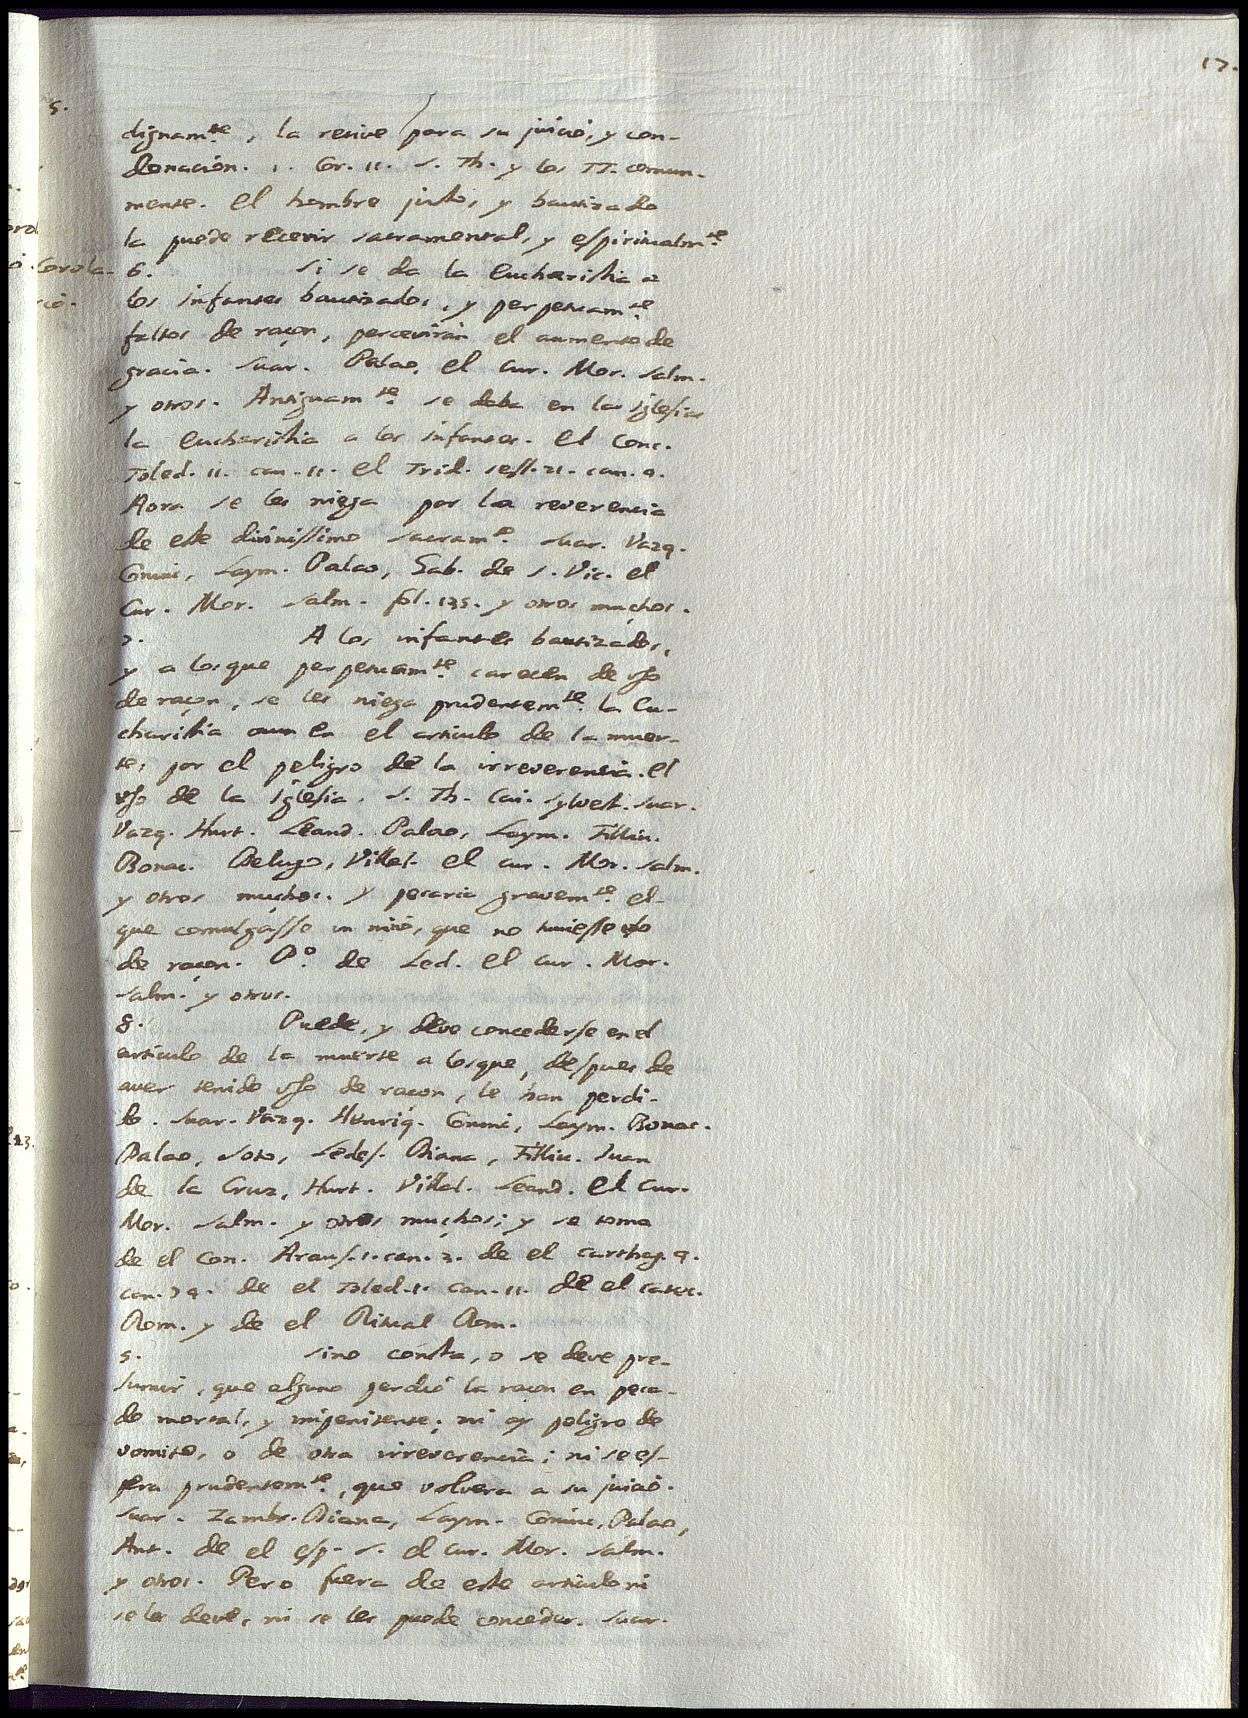 17.
5.
dignam.te, la recive para su juicio, y con-
donacion. 1. Cor. 11. S. Th. y los TT. comun-
mente. El hombre justo, y bautizado
la puede recevir sacramental, y espiritualm.te
6. Si se da la Eucharistia a
los infantes bautizados, y perpetuam.te
faltos de raçon, percevirán el aumento de
gracia. Suar. Palao, el Cur. Mor. Salm.
y otros. Antiguam.te se daba en las Iglesias
la Eucharistia a los infantes. El Conc.
Toled. 11. can. 11. el Trid. sess. 21. can. 4.
Aora se les niega por la reverencia
de este divinissimo sacram.to Suar. Vazq.
Coninc, Laym. Palao, Gab. de S. Vic. el
Cur. Mor. Salm. fol. 135. y otros muchos.
7. A los infantes bautizados,
y a los que perpetuam.te carecen de uso
de raçon, se les niega prudentem.te la Eu-
charistia aun en el articulo de la muer-
te, por el peligro de la irreverencia. El
uso de la Iglesia. S. Th. Cai. Sylvest. Suar.
Vazq. Hurt. Leand. Palao, Laym. Filliu.
Bonac. Delugo, Villal. el Cur. Mor. Salm.
y otros muchos. y pecaria gravem.te el
que comulgasse un niño, que no tuviesse uso
de raçon. P.o de Led. el Cur. Mor.
Salm. y otros.
8. Puede, y deve concederse en el
articulo de la muerte a los que, despues de
aver tenido uso de raçon, le han perdi-
do. Suar. Vazq. Henriq. Coninc, Laym. Bonac.
Palao, Soto, Ledes. Diana, Filliu. Juan
de la Cruz, Hurt. Villal. Leand. el Cur.
Mor. Salm. y otros muchos; y se toma
de el Con. Araus. 1. can. 3. de el Carthag. 4.
can. 74. de el Toled. 1. can. 11. de el Catec.
Rom. y de el Ritual Rom.
9. Sino consta, o se deve pre-
sumir, que alguno perdió la raçon en peca-
do mortal, y impenitente; ni ay peligro de
vomito, o de otra irreverencia; ni se es-
pera prudentem.te, que volvera a su juicio.
Suar. Zambr. Diana, Laym. Coninc, Palao,
Ant. de el Esp. S. el Cur. Mor. Salm.
y otros. Pero fuera de este articulo ni
se les deve, ni se les puede conceder. Suar.